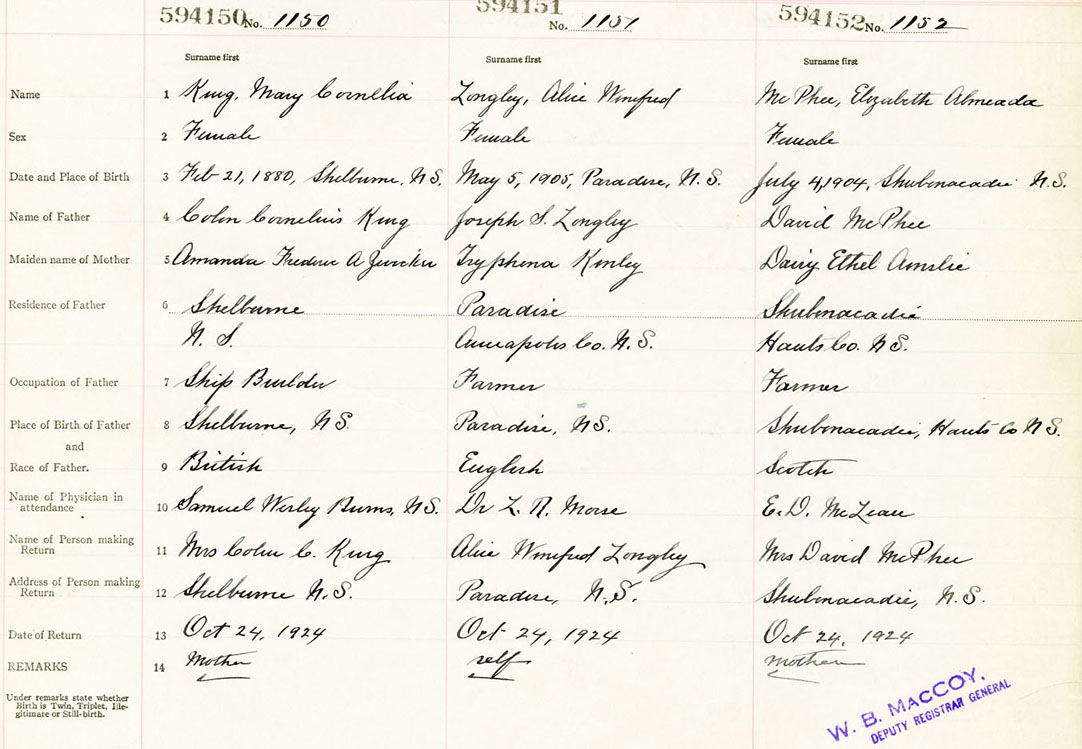 594150 No. 1150 594151 No. 1151 594152 No. 1152
Surname first Surname first Surname first
Name 1 King, Mary Cornelia Longley, Alice Winifred McPhee, Elizabeth Almeada
Sex 2 Female Female Female
Date and Place of Birth 3 Feb 21, 1880, Shelburne, N.S. May 5, 1905, Paradise, N.S. July 4, 1904, Shubenacadie N.S.
Name of Father 4 Colin Cornelius King Joseph S. Longley David McPhee
Maiden name of Mother 5 Amanda Frederic A Tryphena Kinley Dairy Ethel Ainslie
Residence of Father 6 Shelburne Paradise Shubenacadie
N. S. Annapolis Co. N.S. Hants Co. N.S.
Occupation of Father 7 Ship Builder Farmer Farmer
Place of Birth of Father 8 Shelburne, N.S. Paradise, N.S. Shubenacadie, Hants Co N.S.
and
Race of Father. 9 British English Scotch
Name of Physician in attendance 10 Samuel Wesley Burns, N.S. Dr L. R. Morse E. D. McLean
Name of Person making Return 11 Mrs Colin C. King Alice Winifred Longley Mrs David McPhee
Address of Person making Return 12 Shelburne N.S. Paradise, N.S. Shubenacadie, N.S.
Date of Return 13 Oct 24, 1924 Oct 24, 1924 Oct 24, 1924
REMARKS 14 Mother self mother
Under remarks state whether
Birth is Twin, Triplet, Ille-
gitimate or Still-birth.
W. B. MACCOY.
DEPUTY REGISTRAR GENERAL